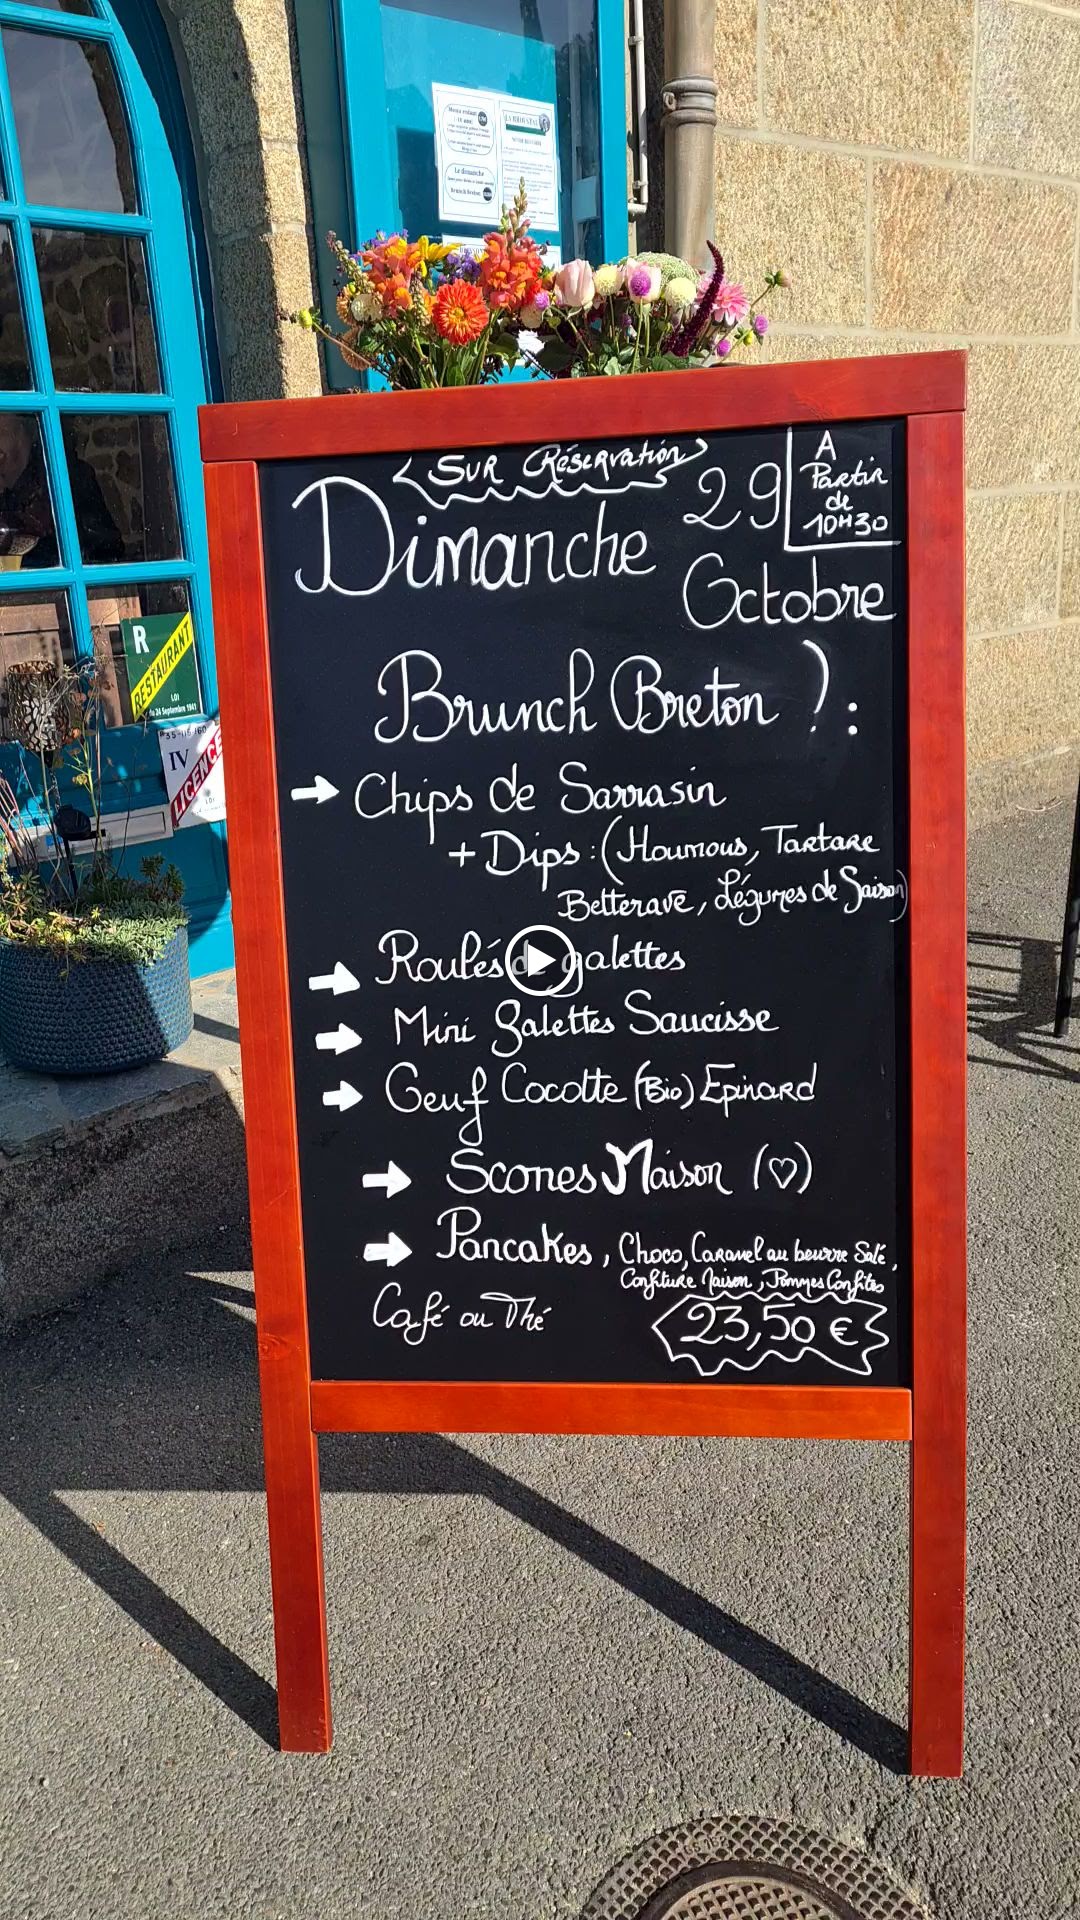 Sur Réservation
Dimanche 29 Octobre
A Partir de 10H30
Brunch Breton ! :
Chips de Sarrasin
+ Dips : (Houmous, Tartare
Betterave, Légumes de Saison)
Roulés de galettes
Mini galettes Saucisse
Oeuf Cocotte (Bio) Epinard
Scones Maison (♡)
Pancakes, Choco, Caramel au beurre Salé,
Confiture Maison, Pommes Confites
Café ou Thé
23,50 €
Menu enfant
Le dimanche
R
RESTAURANT
LOI
du 24 Septembre 1941
IV
LICENCE